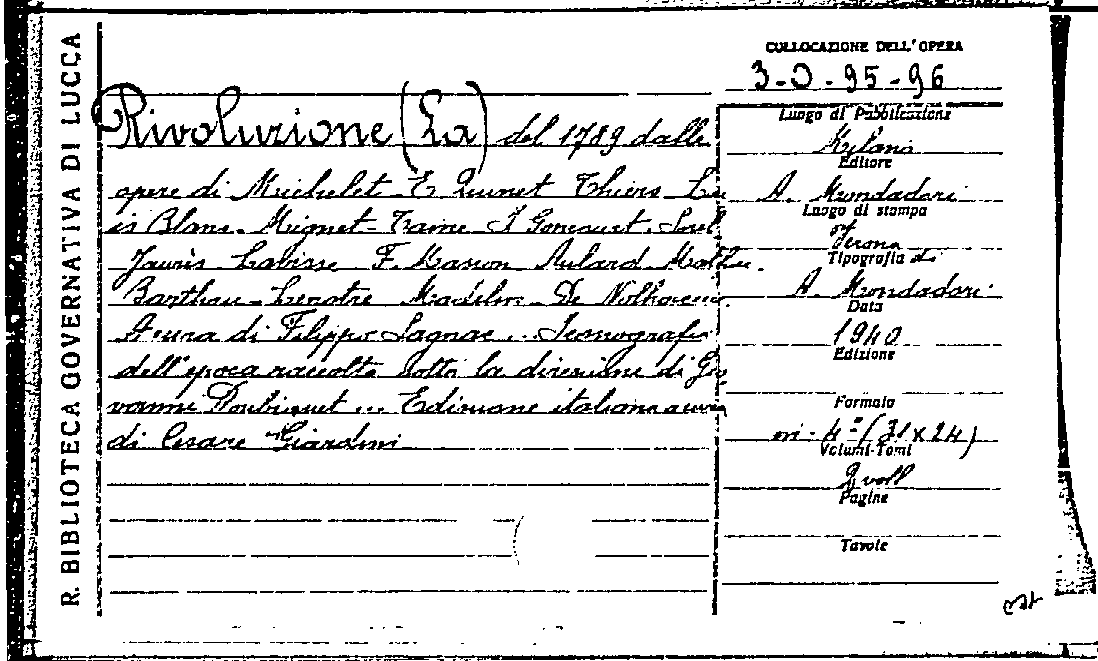 R. BIBLIOTECA GOVERNATIVA DI LUCCA
COLLOCAZIONE DELL'OPERA
3-O-95-96
Rivoluzione (La) del 1789 dalle
opere di Michelet E Quinet Thiers Lu
is Blanc. Mignet-Taine I Goncourt. Sorel
Jaurès Labisse F. Masson Aulard Mathiez.
Barthou-Lenotre Madelin De Nolhac
A cura di Filippo Sagnac ... Iconografia
dell'epoca raccolta sotto la direzione di Gio
vanni Doubiquet ... Edizione italiana a cura
di Cesare Giardini
Luogo di Pubblicazione
Milano
Editore
A. Mondadori
Luogo di stampa
Verona
Tipografia di
A. Mondadori
Data
1940
Edizione
Formato
in-4° (31 x 24)
Volumi-Tomi
2 voll
Pagine
Tavole